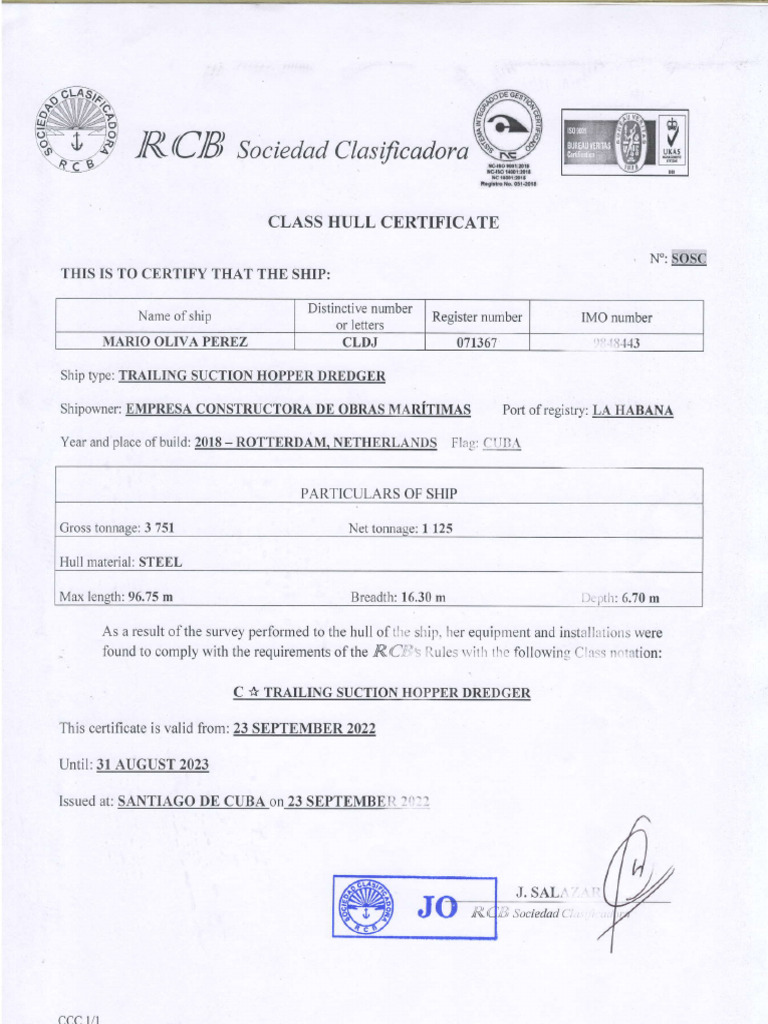 SOCIEDAD CLASIFICADORA
RCB
RCB Sociedad Clasificadora
SISTEMA INTEGRADO DE GESTIÓN CERTIFICADO
NC
NC-ISO 9001:2015
NC-ISO 14001:2015
NC 18001:2015
Registro No. 031-2018
ISO 9001
BUREAU VERITAS
Certification
1828
UKAS
MANAGEMENT
SYSTEMS
008
CLASS HULL CERTIFICATE
Nº: SOSC
THIS IS TO CERTIFY THAT THE SHIP:
Name of ship Distinctive number or letters Register number IMO number
MARIO OLIVA PEREZ CLDJ 071367 9848443
Ship type: TRAILING SUCTION HOPPER DREDGER
Shipowner: EMPRESA CONSTRUCTORA DE OBRAS MARÍTIMAS Port of registry: LA HABANA
Year and place of build: 2018 – ROTTERDAM, NETHERLANDS Flag: CUBA
PARTICULARS OF SHIP
Gross tonnage: 3 751 Net tonnage: 1 125
Hull material: STEEL
Max length: 96.75 m Breadth: 16.30 m Depth: 6.70 m
As a result of the survey performed to the hull of the ship, her equipment and installations were
found to comply with the requirements of the RCB's Rules with the following Class notation:
C ☆ TRAILING SUCTION HOPPER DREDGER
This certificate is valid from: 23 SEPTEMBER 2022
Until: 31 AUGUST 2023
Issued at: SANTIAGO DE CUBA on 23 SEPTEMBER 2022
SOCIEDAD CLASIFICADORA
RCB
JO
J. SALAZAR
RCB Sociedad Clasificadora
CCC 1/1